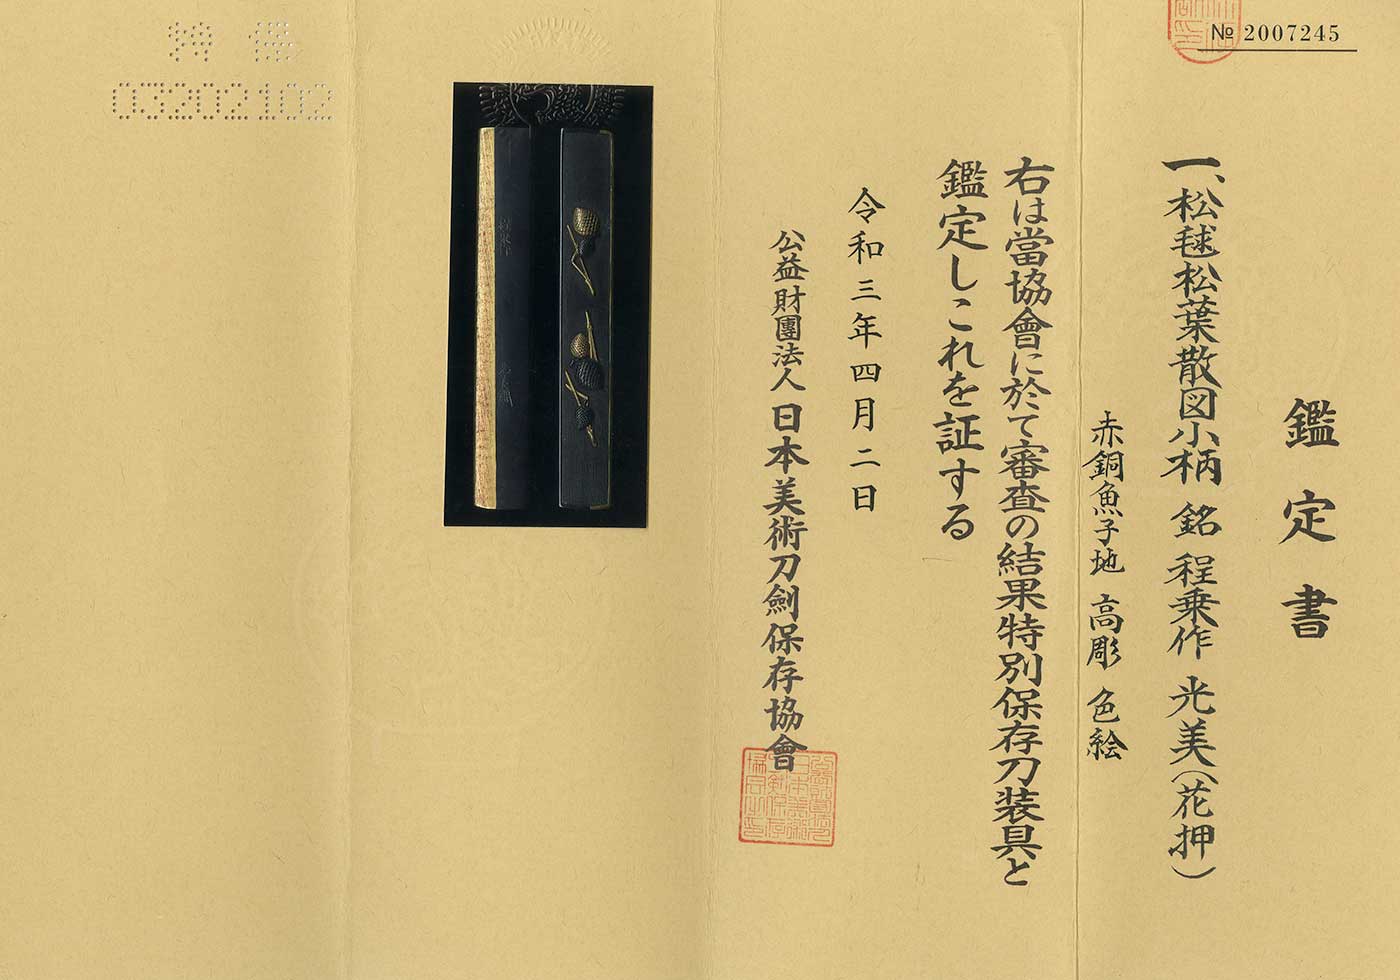 № 2007245
鑑定書
一、松毬松葉散図小柄 銘 程乗作 光美(花押)
赤銅魚子地 高彫 色絵
右は當協會に於て審査の結果特別保存刀装具と
鑑定しこれを証する
令和三年四月二日
公益財團法人 日本美術刀劍保存協會
03202102